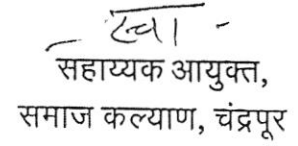 स्वा/-
सहाय्यक आयुक्त,
समाज कल्याण, चंद्रपूर